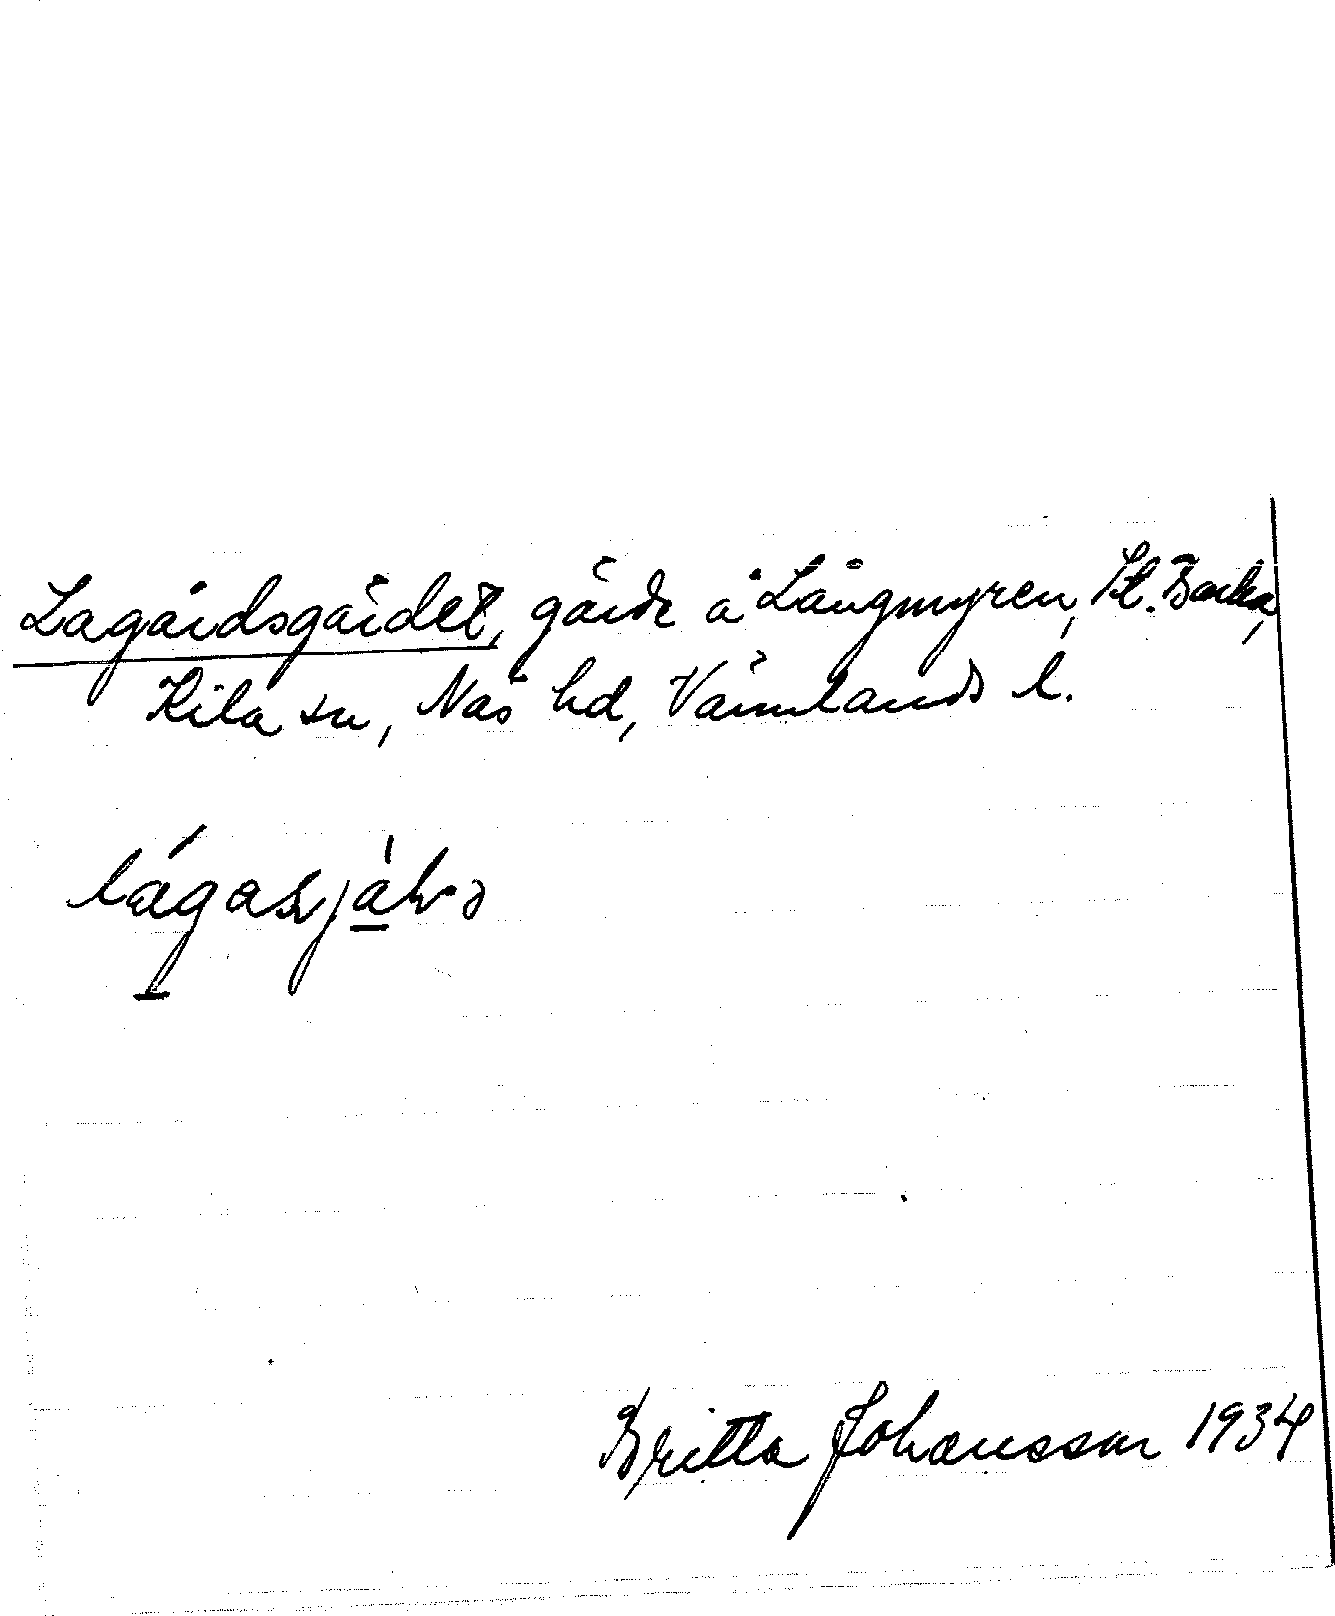 Lagårdsgärdet, gärde å Långmyren, St. Backa,
Kila sn, Näs hd, Värmlands l.
Britta Johansson 1934